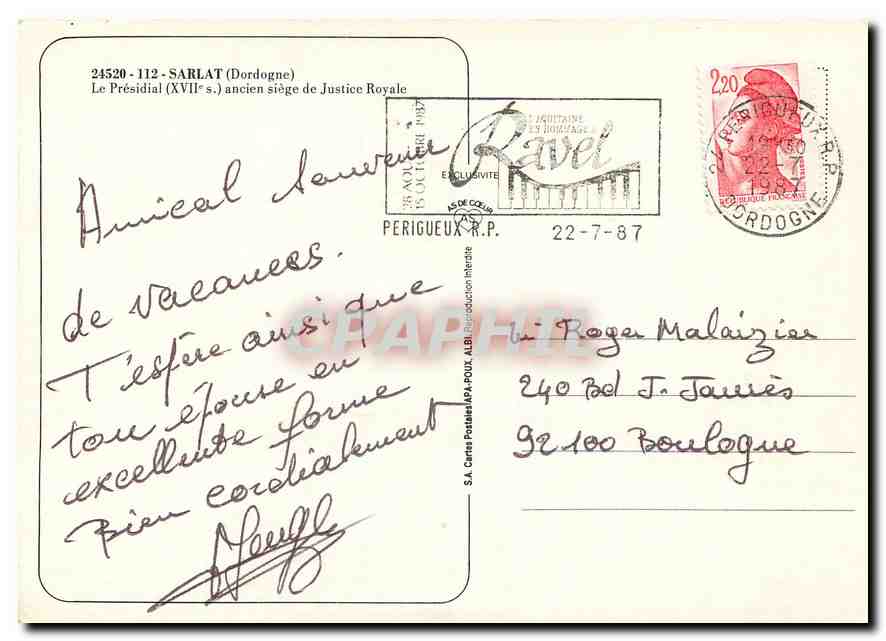 24520 - 112 - SARLAT (Dordogne)
Le Présidial (XVIIe s.) ancien siège de Justice Royale
Amical Souvenir
de vacances.
T'espère ainsi que
ton épouse en
excellente forme
Bien cordialement
S.A. Cartes Postales APA-POUX, ALBI, Reproduction Interdite
EXCLUSIVITE
AS DE CŒUR
AS
28 AOUT
15 OCTOBRE 1987
L'AQUITAINE
EN HOMMAGE A
Ravel
PERIGUEUX R.P. 22-7-87
2,20
REPUBLIQUE FRANÇAISE
24 PERIGUEUX R.P.
22-7
1987
DORDOGNE
Roger Malaizier
240 Bd J. Jaurès
92100 Boulogne
CPAPHIL